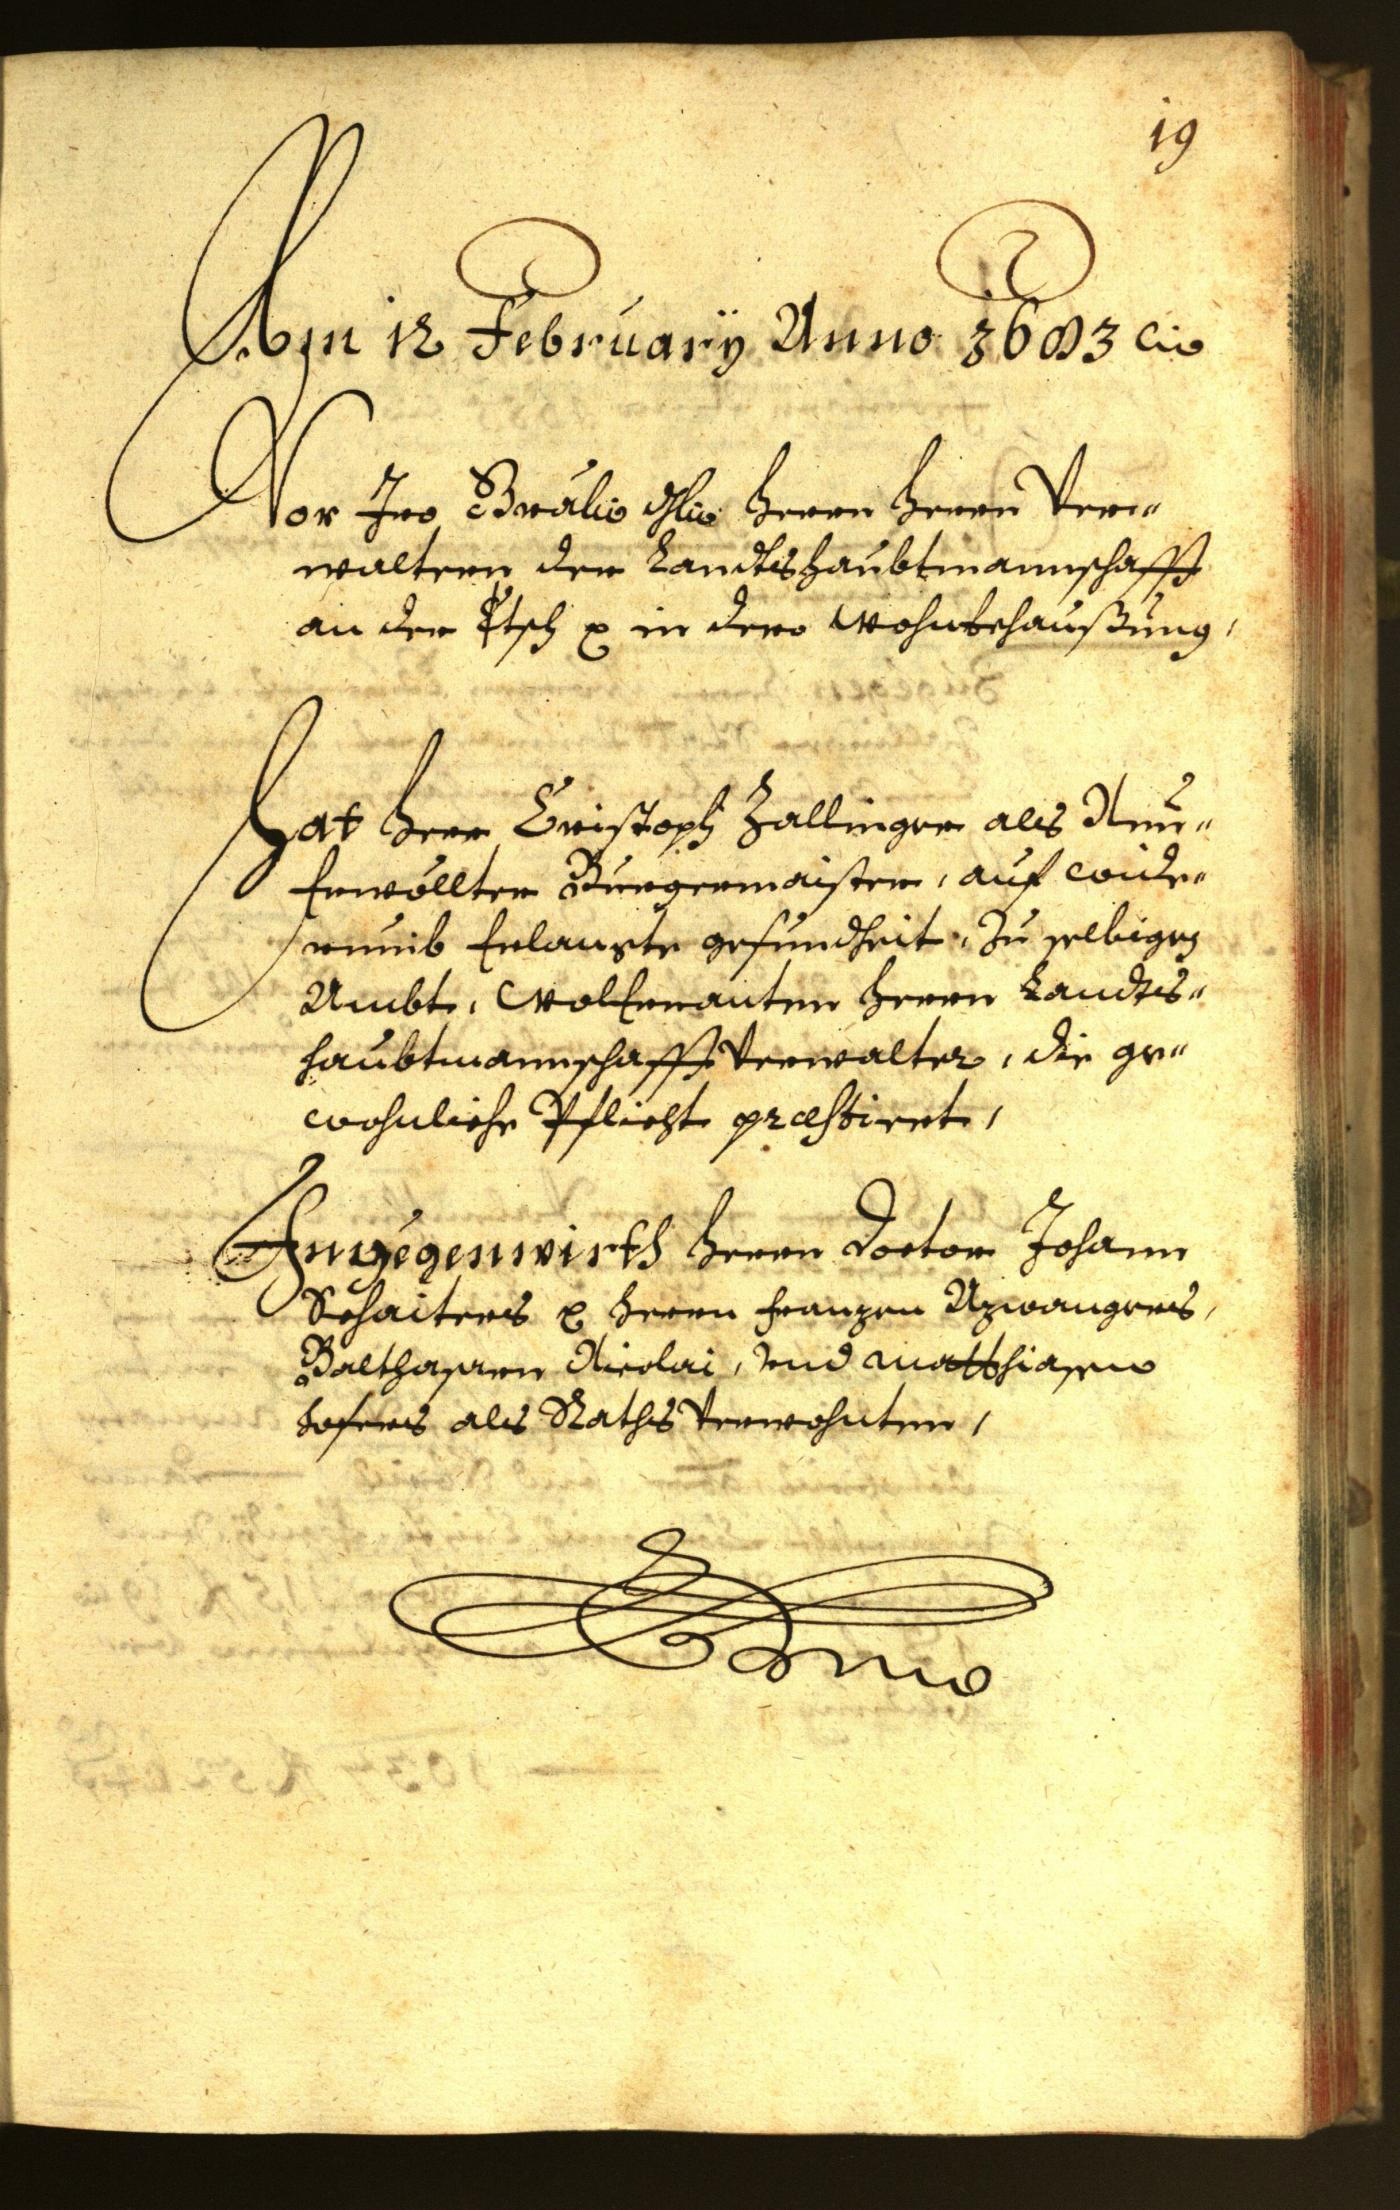 19
Am 12 February Anno 1683 etc
Vor Iro Gräflie Herrn Herrn Ver¬
waltern der Landtshaubtmannschafft
an der Etsch etc in dero wohnbehaußung,
Hat Herr Cristoph Zallinger als Neu¬
Erwöllter Burgermaister, auf wide¬
rumb Erlangte gesundheit, zu selbigen
Ambt, wolErnanten Herrn Landts¬
haubtmannschafft Verwalter, die ge¬
wohnliche Pflicht præstiret,
Ingegenwirth Herrn Doctor Johann
Schaiters etc Herrn Franzen Azwangers,
Balthasarn Nicolai, und Matthiasen
Hofers als Raths Verwohnten,